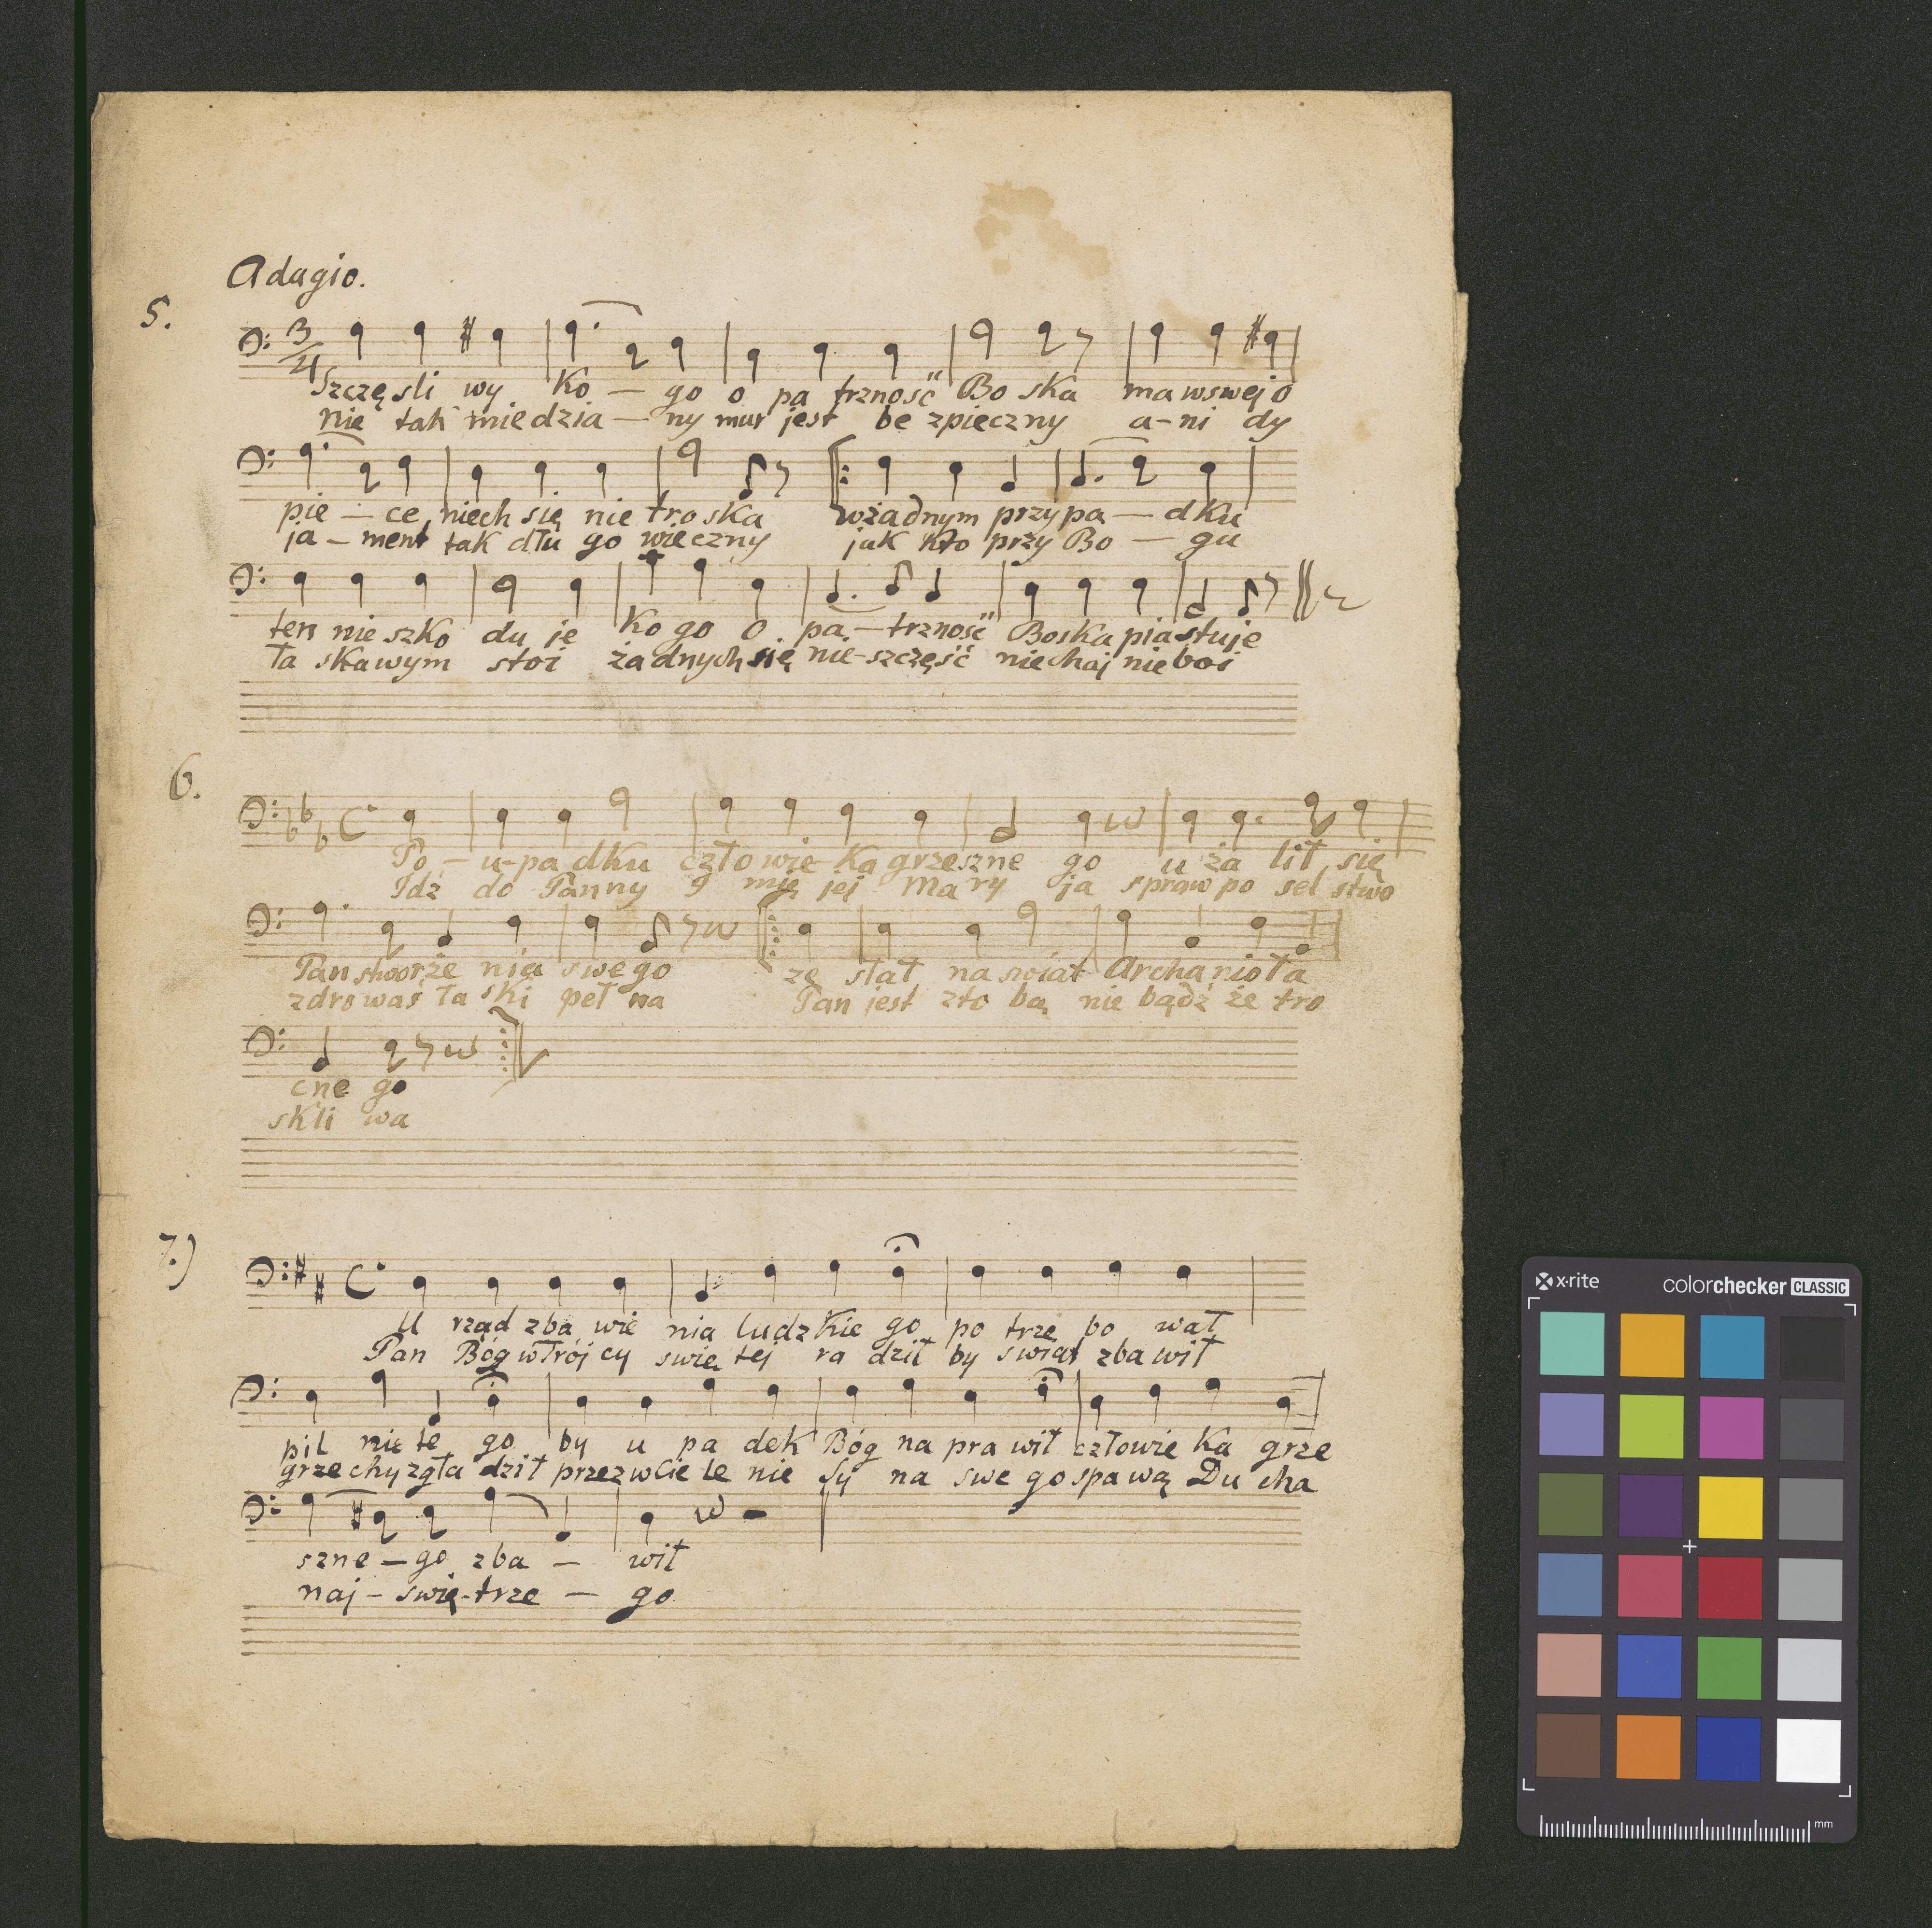 Adagio.
5.
3/4
Szczę sli wy Ko — go o pa trzność Bo ska ma wswej o
nie tak miedzia — ny mur jest be zpieczny a-ni dy
pie — ce niech się nie troska wżadnym przypa — dku
ja — ment tak dłu go wieczny jak Kto przy Bo — gu
ten nie szko du je Ko go O pa — trzność Boska piastuje
ła skawym stoi żadnych się nie-szczęść niechaj nieboi
6.
Po — u-pa dku człowie ka grzeszne go u ża lił się
Idź do Panny I mię jej Ma ry ja spraw po sel stwo
Pan stworze nia swego ze słał na swiat Archanioła
zdrowaś ła ski peł na Pan jest zto bą nie bądź że tro
cne go
skli wa
7.)
U rząd zba wie nia ludzkie go po trze bo wał
Pan Bóg wTrój cy swię tej ra dził by swiat zba wił
pil nie te go by u pa dek Bóg na pra wił człowie Ka grze
grzechy zgła dził przez wcie le nie Sy na swe go spawą Du cha
szne — go zba — wił
naj — swię-trze — go
x·rite
colorchecker CLASSIC
mm